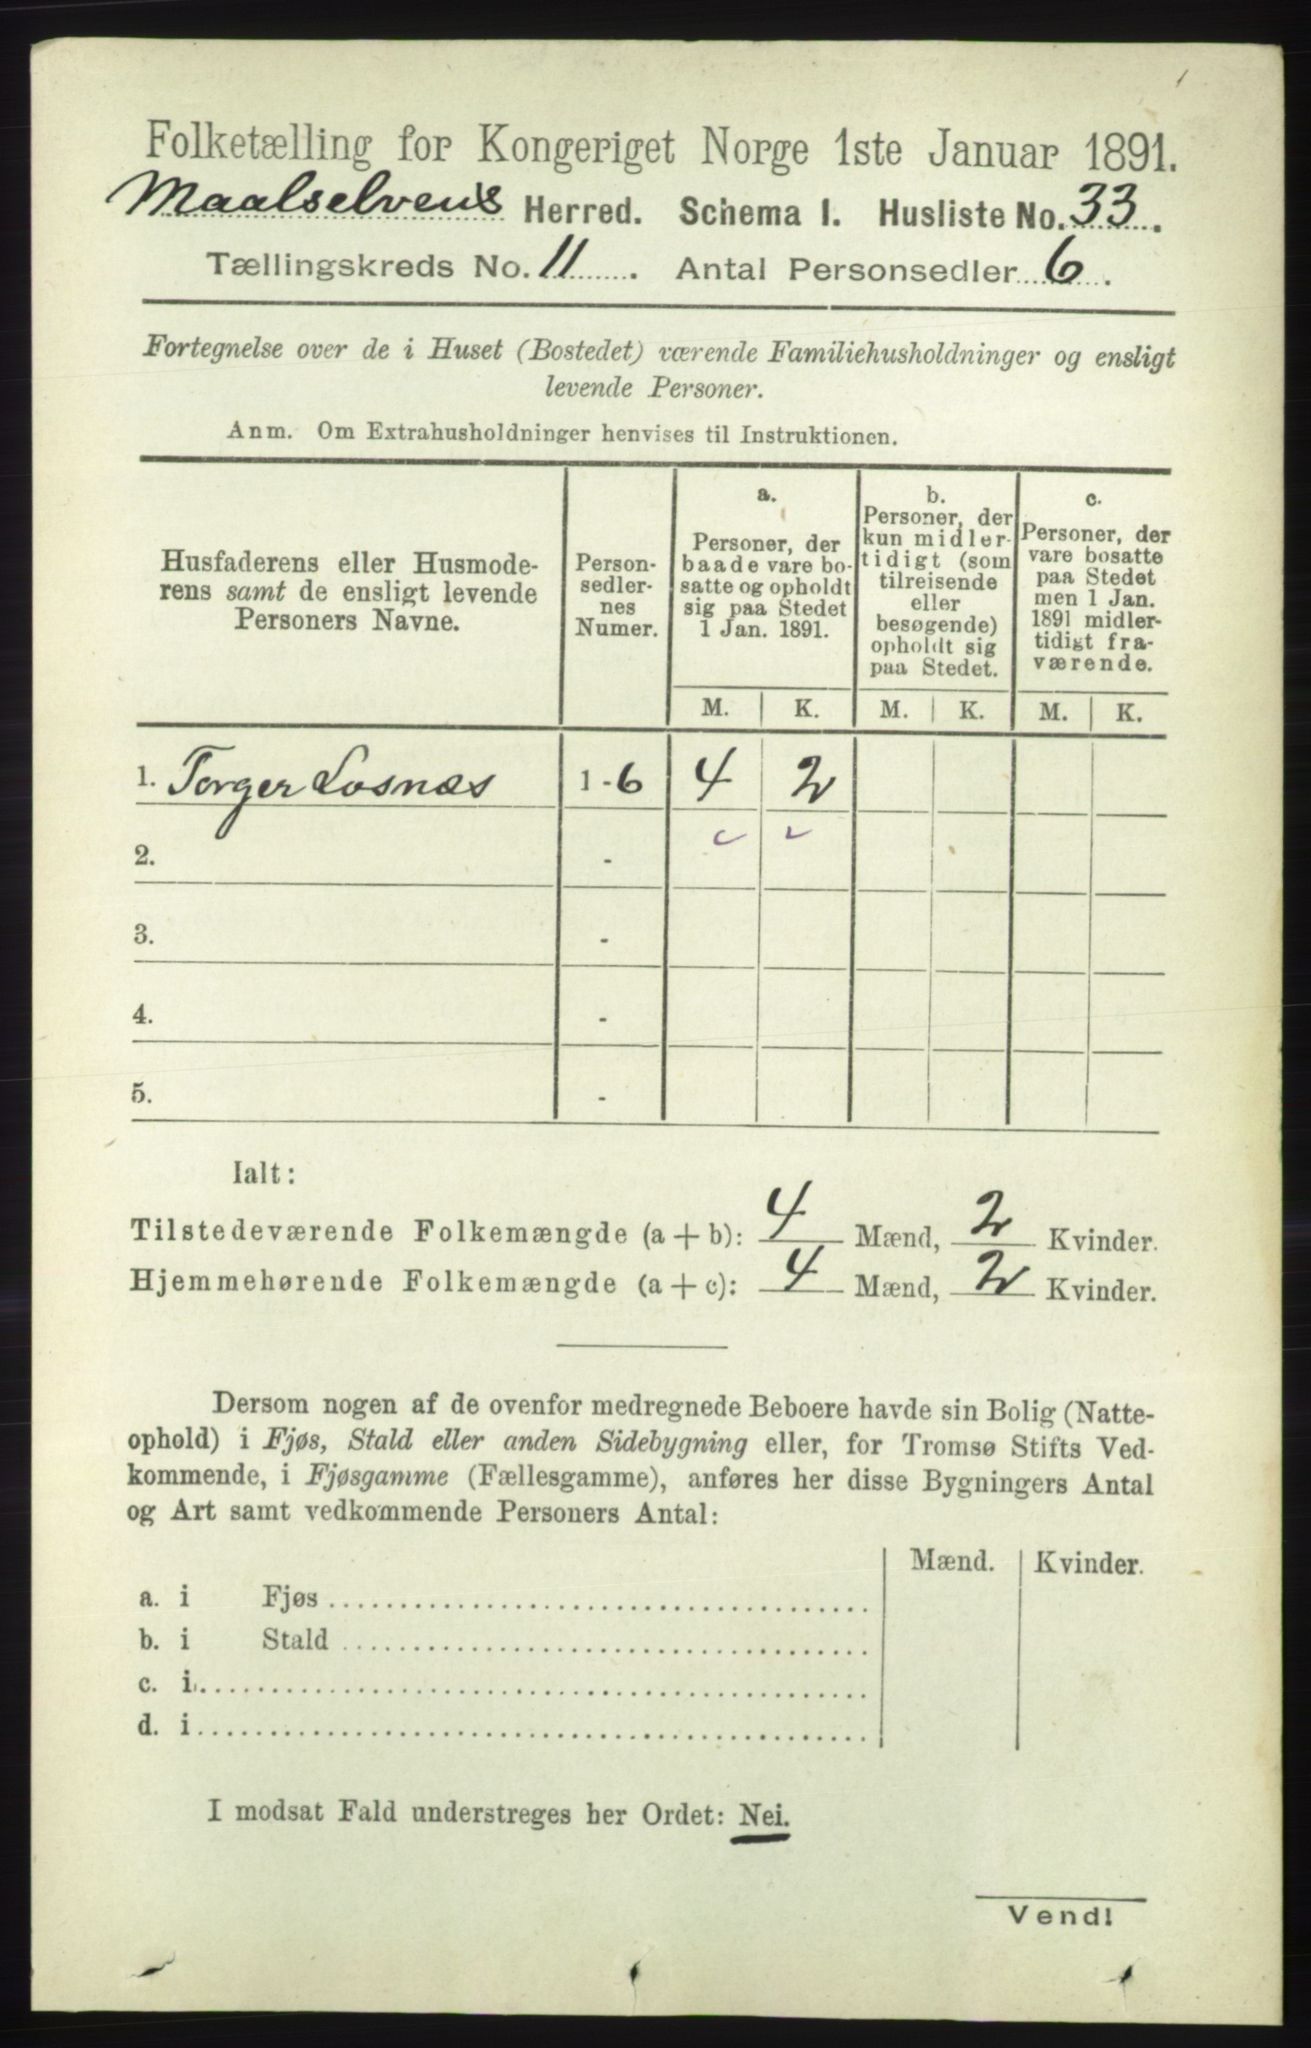 Folketælling for Kongeriget Norge 1ste Januar 1891.
Maalselvens Herred. Schema I. Husliste No. 33.
Tællingskreds No. 11. Antal Personsedler 6.
Fortegnelse over de i Huset (Bostedet) værende Familiehusholdninger og ensligt
levende Personer.
Anm. Om Extrahusholdninger henvises til Instruktionen.
Husfaderens eller Husmode-
rens samt de ensligt levende
Personers Navne.
Person-
sedler-
nes
Numer.
a.
Personer, der
baade vare bo-
satte og opholdt
sig paa Stedet
1 Jan. 1891.
b.
Personer, der
kun midler-
tidigt (som
tilreisende
eller
besøgende)
opholdt sig
paa Stedet.
c.
Personer, der
vare bosatte
paa Stedet
men 1 Jan.
1891 midler-
tidigt fra-
værende.
M. K. M. K. M. K.
1. Torger Losnæs 1-6 4 2
2. -
3. -
4. -
5. -
Ialt:
Tilstedeværende Folkemængde (a + b): 4 Mænd, 2 Kvinder.
Hjemmehørende Folkemængde (a + c): 4 Mænd, 2 Kvinder.
Dersom nogen af de ovenfor medregnede Beboere havde sin Bolig (Natte-
ophold) i Fjøs, Stald eller anden Sidebygning eller, for Tromsø Stifts Ved-
kommende, i Fjøsgamme (Fællesgamme), anføres her disse Bygningers Antal
og Art samt vedkommende Personers Antal:
Mænd. Kvinder.
a. i Fjøs
b. i Stald
c. i
d. i
I modsat Fald understreges her Ordet: Nei.
Vend!